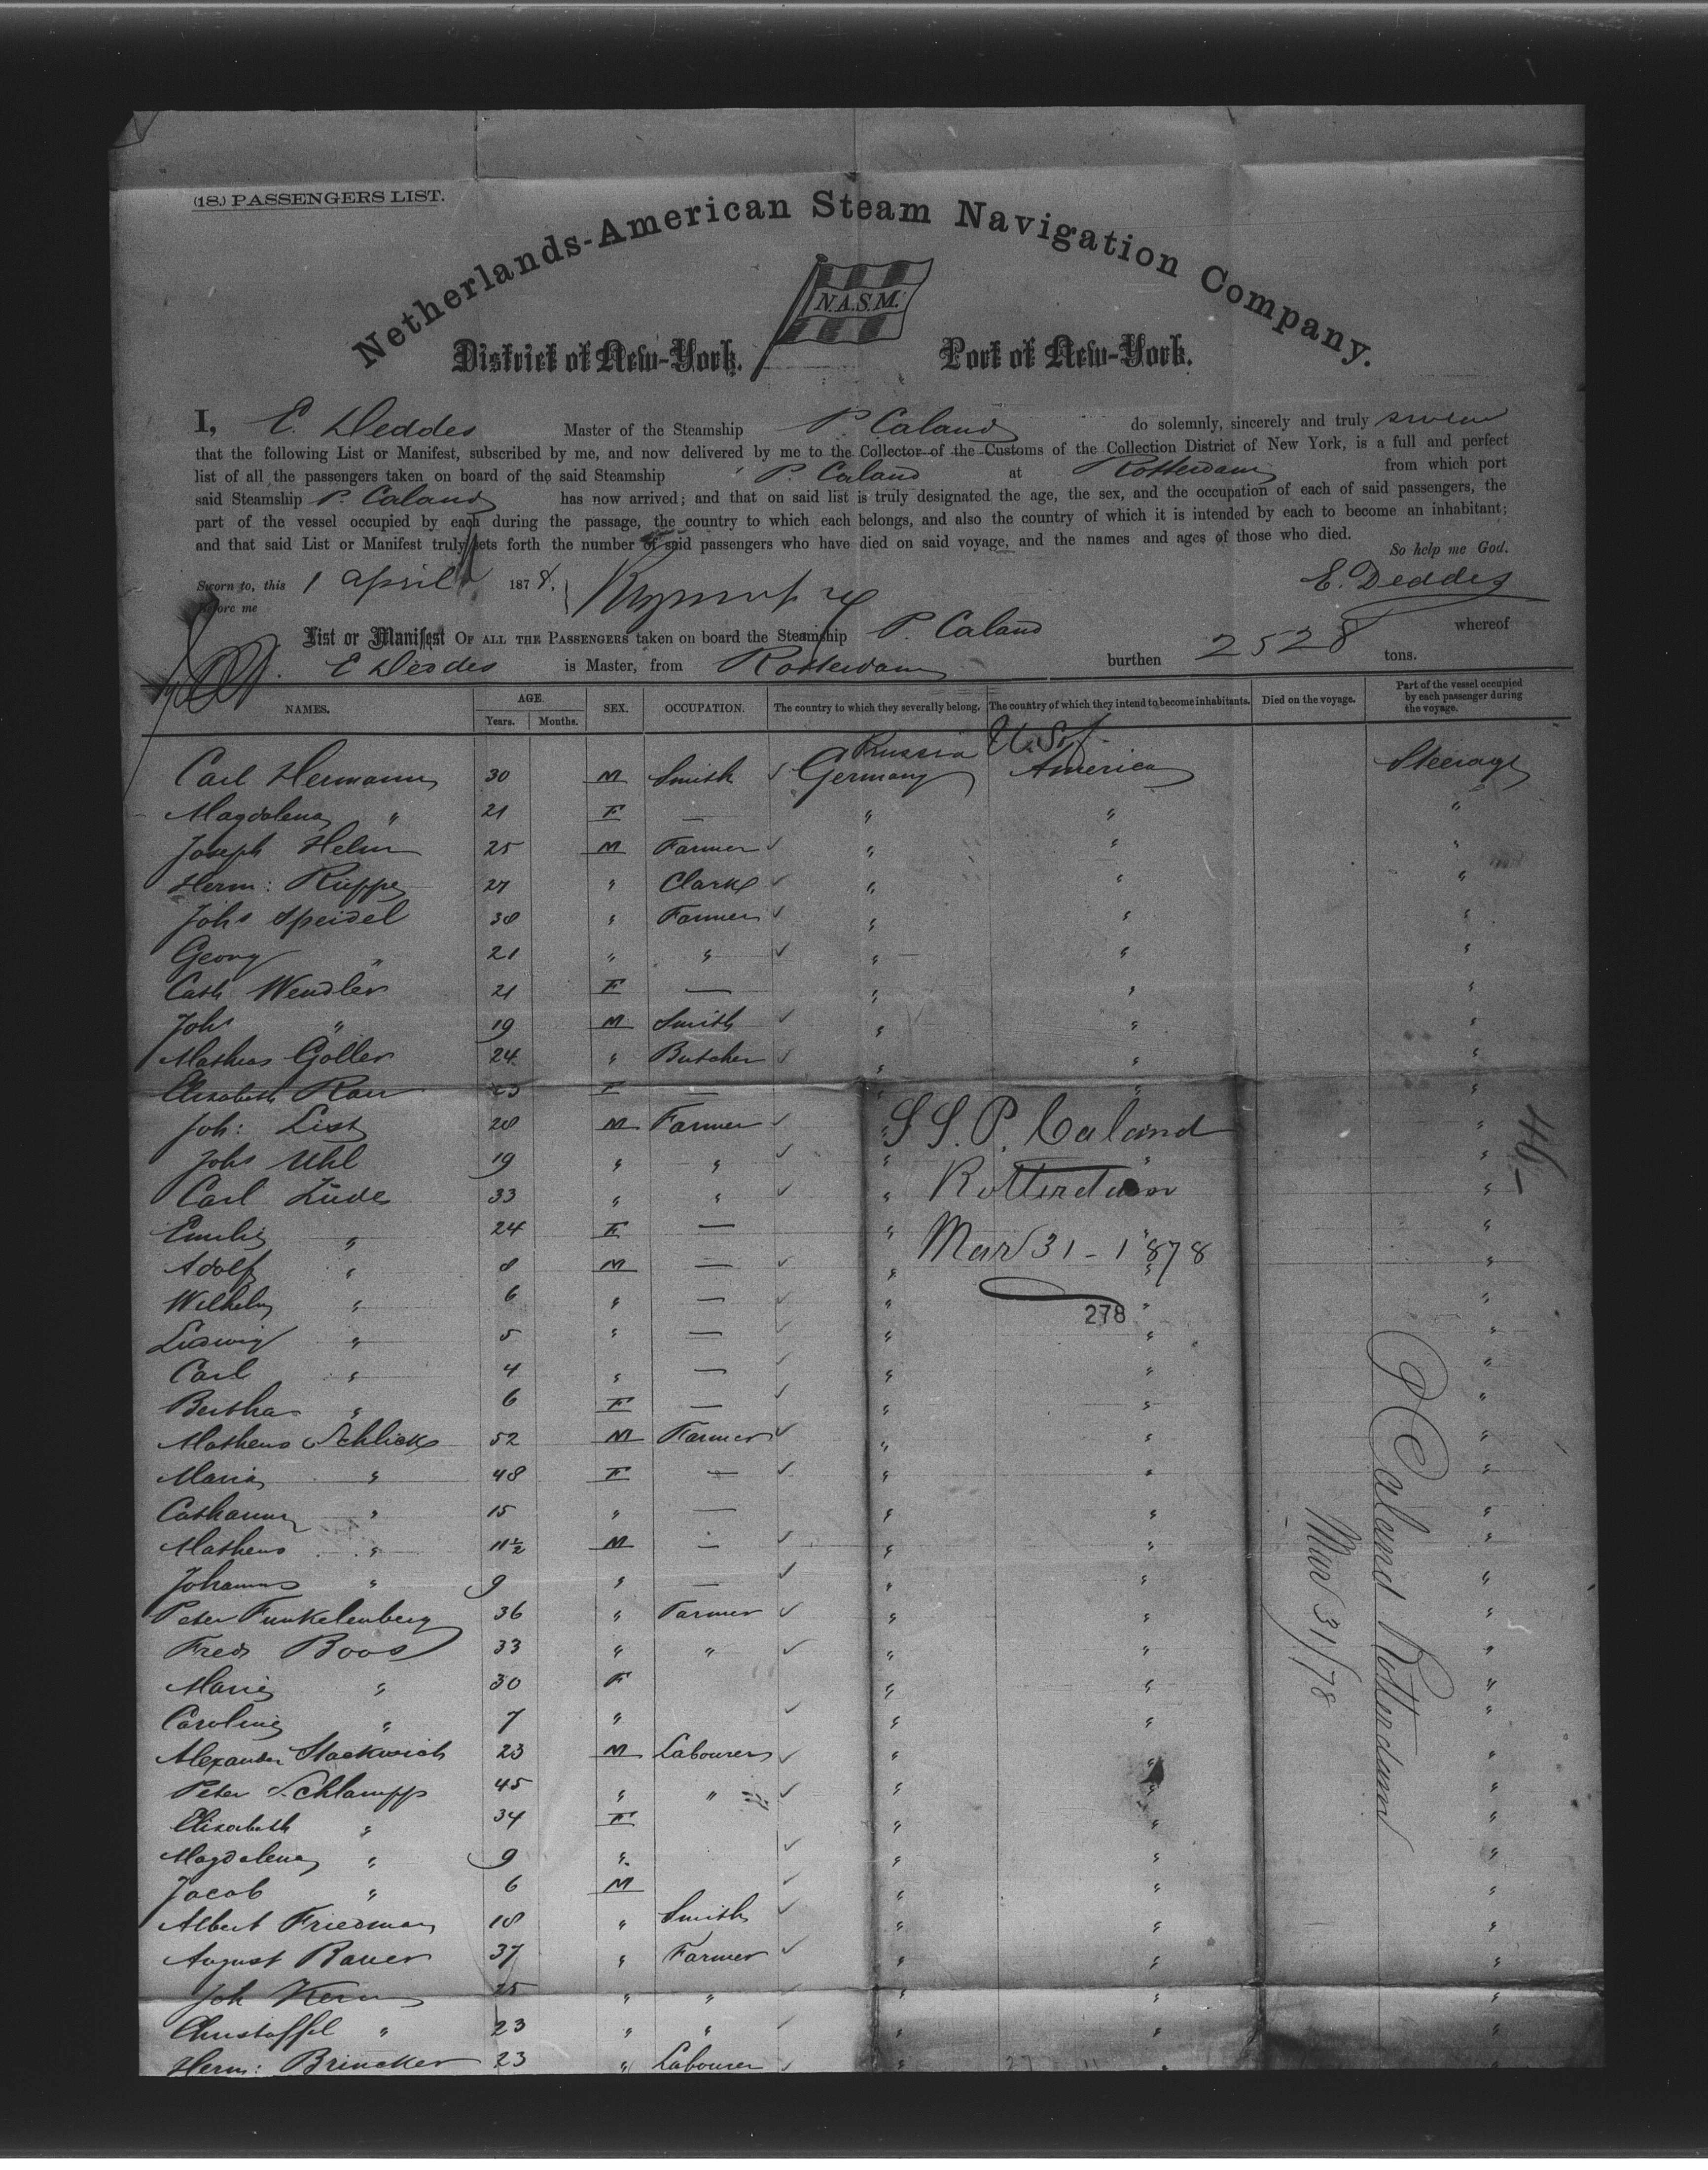 (18.) PASSENGERS LIST.
Netherlands-American Steam Navigation Company.
N.A.S.M.
District of New-York. Port of New-York.
I, E. Deddes Master of the Steamship P. Caland do solemnly, sincerely and truly swear
that the following List or Manifest, subscribed by me, and now delivered by me to the Collector of the Customs of the Collection District of New York, is a full and perfect
list of all the passengers taken on board of the said Steamship P. Caland at Rotterdam from which port
said Steamship P. Caland has now arrived; and that on said list is truly designated the age, the sex, and the occupation of each of said passengers, the
part of the vessel occupied by each during the passage, the country to which each belongs, and also the country of which it is intended by each to become an inhabitant;
and that said List or Manifest truly sets forth the number of said passengers who have died on said voyage, and the names and ages of those who died.
So help me God.
Sworn to, this 1 April 1878. E. Deddes
before me
List or Manifest OF ALL THE PASSENGERS taken on board the Steamship P. Caland whereof
E Deddes is Master, from Rotterdam burthen 2528 tons.
NAMES. AGE. Years. Months. SEX. OCCUPATION. The country to which they severally belong. The country of which they intend to become inhabitants. Died on the voyage. Part of the vessel occupied by each passenger during the voyage.
Russia U.S. of
Carl Hermann 30 M Smith ✓ Germany America Steerage
Magdalena " 21 F — " " "
Joseph Helm 25 M Farmer ✓ " " "
Herm: Ruppe 27 " Clark ✓ " " "
Johs Speidel 38 " Farmer ✓ " " "
Georg " 21 " " ✓ " " "
Cath Wendler 21 F — " " "
Johs " 19 M Smith ✓ " " "
Matheus Goller 24 " Butcher ✓ " " "
Elisabeth Rau 23 F — " " "
Joh: List 28 M Farmer ✓ " "
S S. P. Caland
Johs Uhl 19 " " ✓ " " "
Carl Lüde 33 " " ✓ " "
Rotterdam
Emilie " 24 F — " " "
Mar 31 - 1878
Adolf " 8 M — ✓ " " "
Wilhelm " 6 " — ✓ " " "
278
Ludwig " 5 " — ✓ " " "
Carl " 4 " — ✓ " " "
Bertha " 6 F — ✓ " " "
Matheus Schlick 52 M Farmer ✓ " " "
Maria " 48 F — ✓ " " "
Catharina " 15 " — " " "
Matheus " 11½ M — ✓ " " "
Johannes " 9 " — ✓ " " "
Peter Funkelenberg 36 " Farmer ✓ " " "
Fredr Boos 33 " " ✓ " " "
Marie " 30 F " " "
Caroline " 7 " ✓ " " "
Alexander 23 M Labourer ✓ " " "
Peter Schlampp 45 " " ✓ " " "
Elisabeth " 34 F " " "
Magdalena " 9 " ✓ " " "
Jacob " 6 M ✓ " " "
Albert Friedman 18 " Smith ✓ " " "
August Bauer 37 " Farmer ✓ " " "
Joh Kern 25 " " ✓ " " "
Christoffel " 23 " " ✓ " " "
Herm: Brincker 23 " Labourer ✓ " " "
P Caland Rotterdam
Mar 31/78